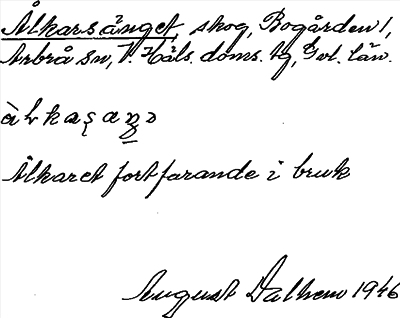 Ålkarsänget, skog, Bogården 1,
Arbrå sn, V. Häls. doms. tg, Gvl. län.
Ålkaret fortfarande i bruk
August Dalhem 1946